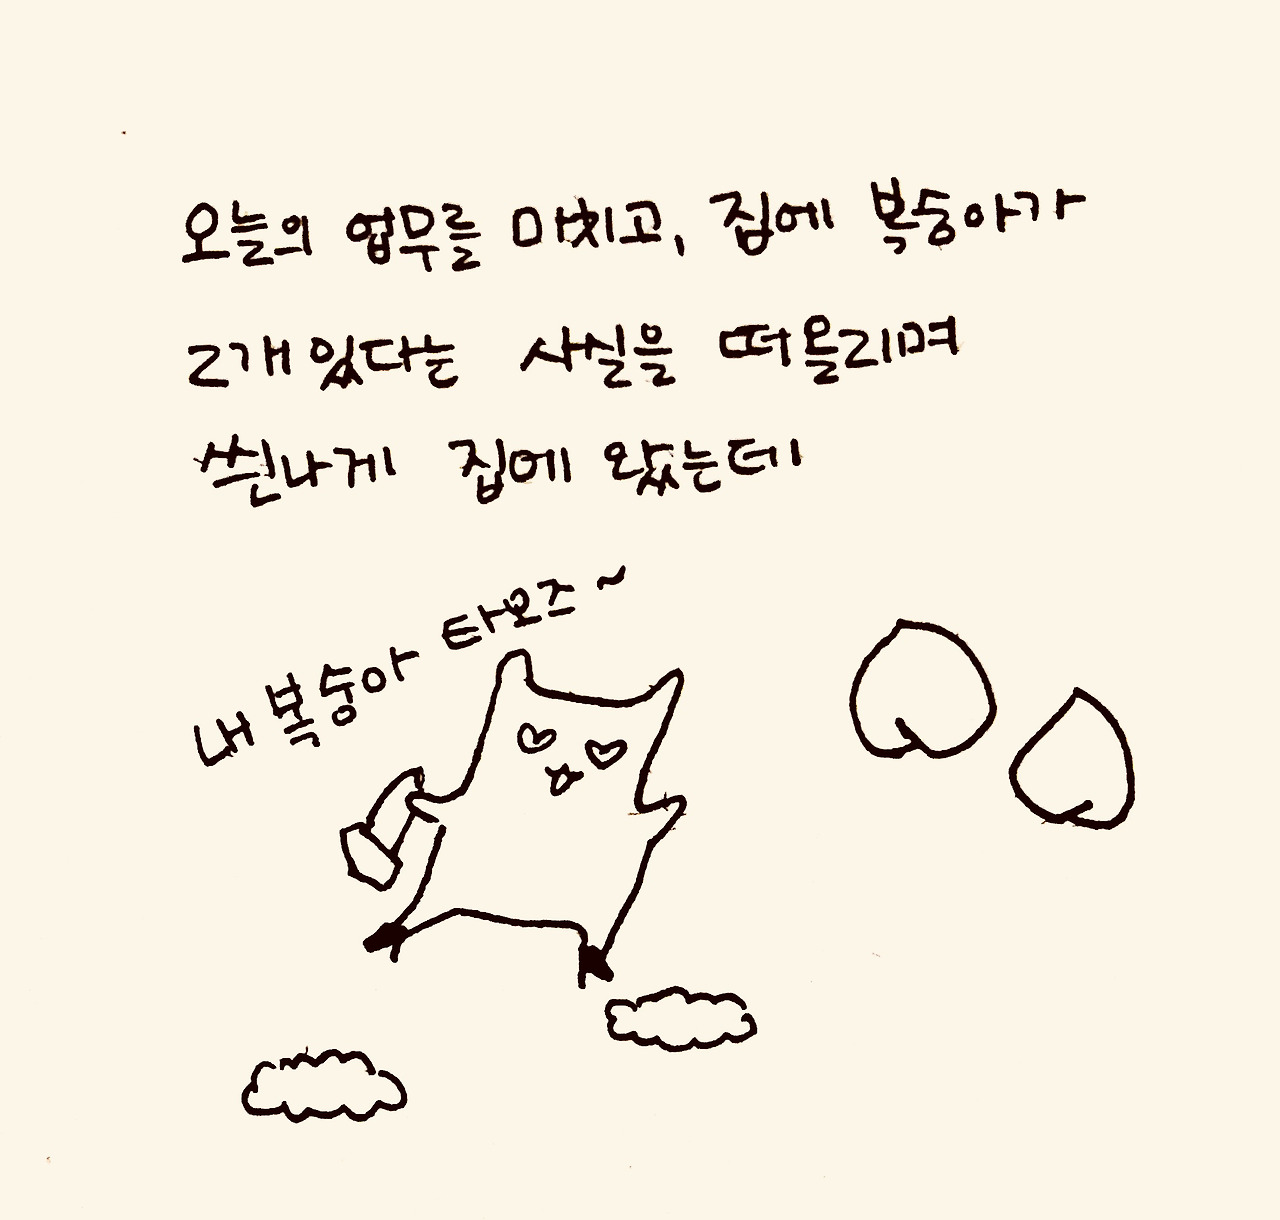 오늘의 업무를 마치고, 집에 복숭아가
2개 있다는 사실을 떠올리며
씐나게 집에 왔는데
내 복숭아 타오즈~